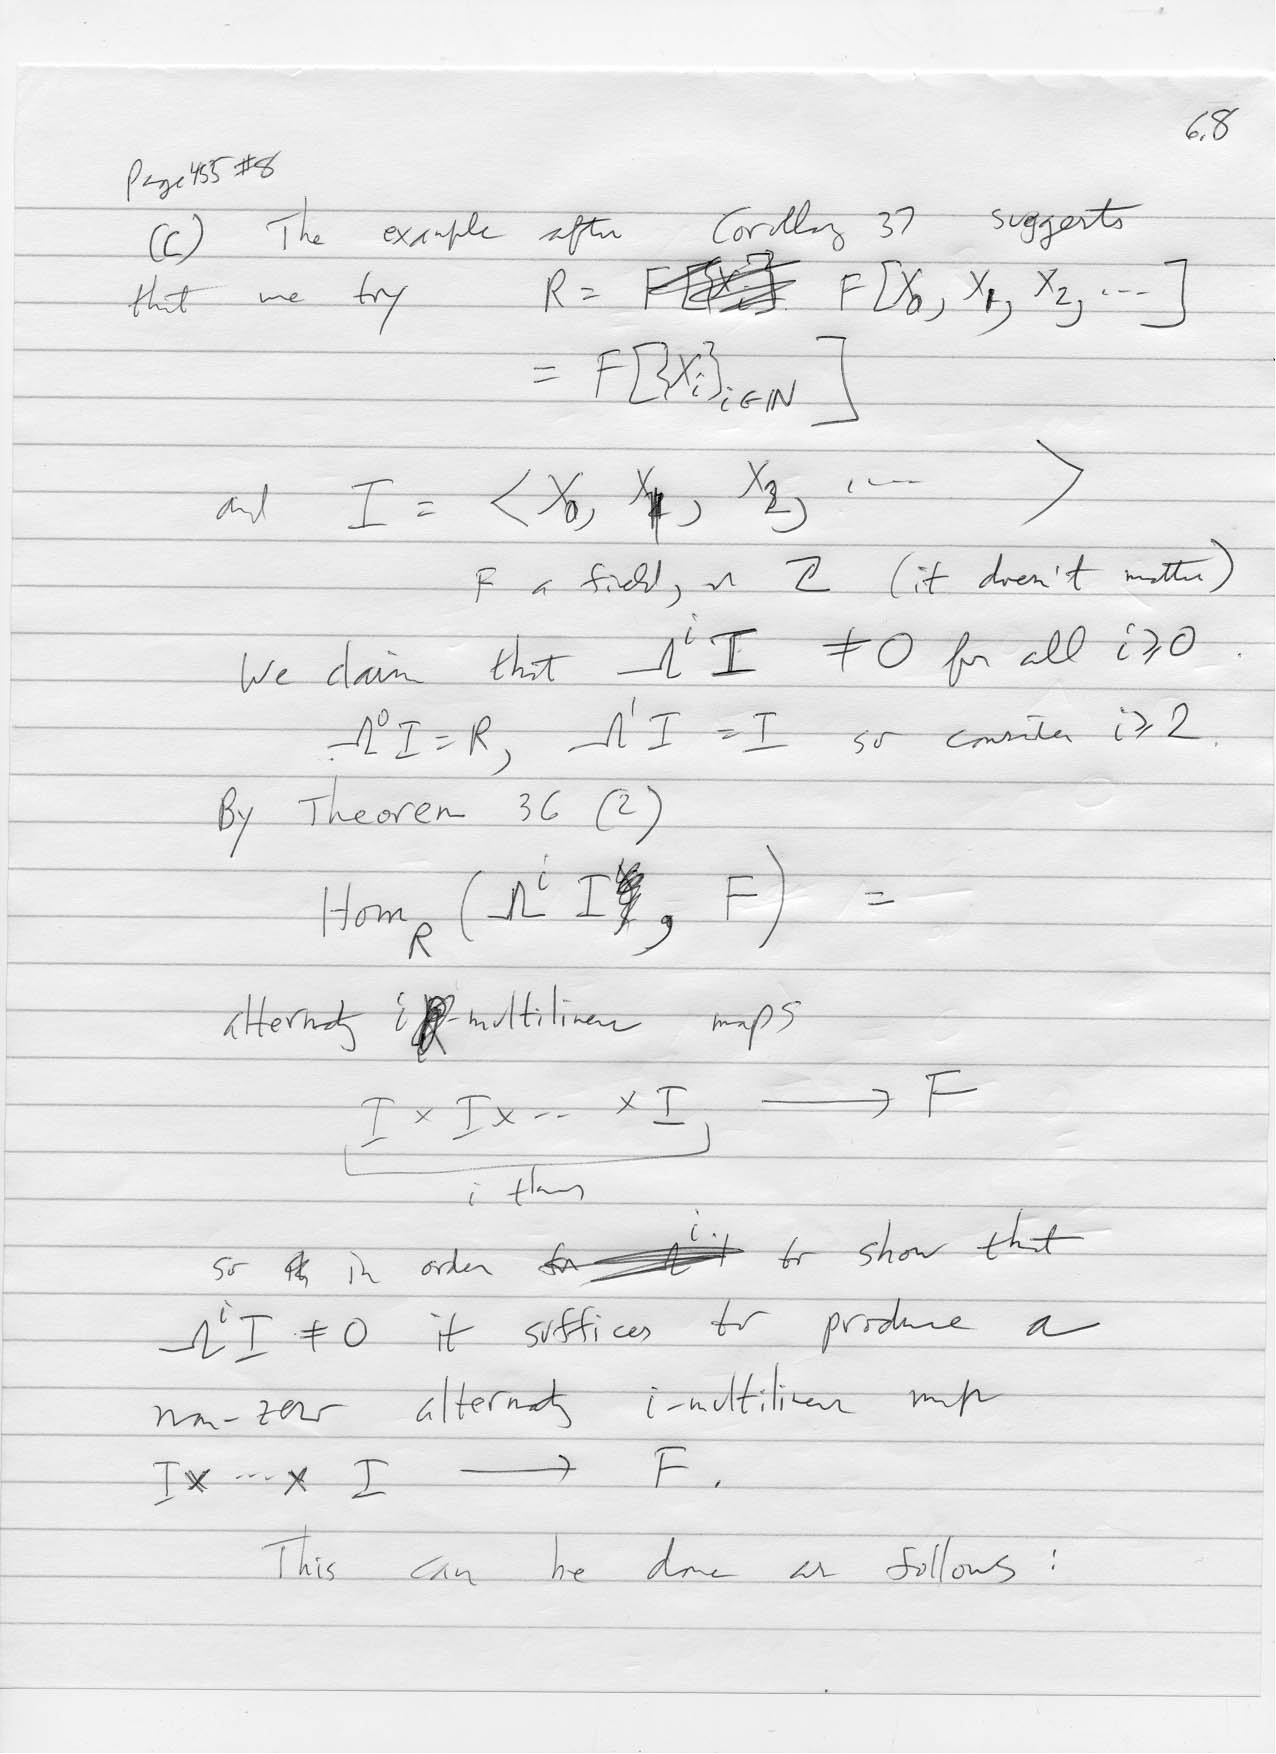 6.8
Page 455 #8
(C) The example after Corollary 37 suggests
that we try R = F[X₀, X₁, X₂, ...]
= F[{Xᵢ}ᵢ∈ℕ]
and I = <X₀, X₁, X₂, ....>
F a field, or ℤ (it doesn't matter)
We claim that Λⁱ I ≠ 0 for all i ≥ 0.
Λ⁰ I = R, Λ¹ I = I so consider i ≥ 2.
By Theorem 36 (2)
Hom_R (Λⁱ I, F) =
alternating i-multilinear maps
I × I × ... × I ⟶ F
i times
so in order to show that
Λⁱ I ≠ 0 it suffices to produce a
non-zero alternating i-multilinear map
I × ... × I ⟶ F.
This can be done as follows: